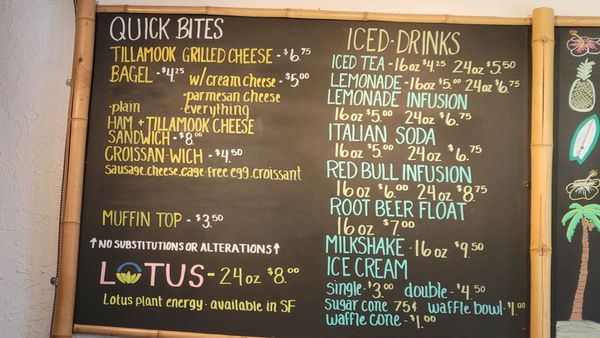 QUICK BITES
TILLAMOOK GRILLED CHEESE - $6.75
BAGEL - $4.25 w/cream cheese - $5.00
-parmesan cheese
-plain -everything
HAM + TILLAMOOK CHEESE
SANDWICH - $8.00
CROISSAN-WICH - $4.50
sausage, cheese, cage-free egg, croissant
MUFFIN TOP - $3.50
↑NO SUBSTITUTIONS OR ALTERATIONS↑
LOTUS - 24oz $8.00
Lotus plant energy - available in SF
ICED-DRINKS
ICED TEA - 16oz $4.25 24oz $5.50
LEMONADE - 16oz $5.00 24oz $6.75
LEMONADE INFUSION
16oz $5.00 24oz $6.75
ITALIAN SODA
16oz $5.00 24oz $6.75
RED BULL INFUSION
16oz $6.00 24oz $8.75
ROOT BEER FLOAT
16oz $7.00
MILKSHAKE - 16oz $9.50
ICE CREAM
single - $3.00 double - $4.50
sugar cone 75¢ waffle bowl - $1.00
waffle cone - $1.00